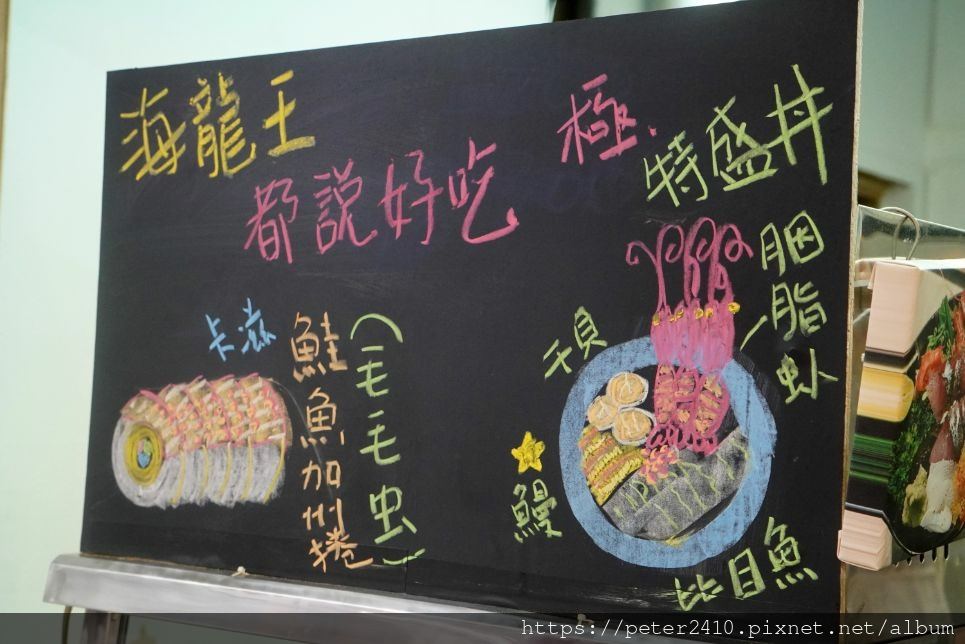 海龍王
都說好吃
極.
特盛丼
卡滋
鮭魚加州捲
(毛毛虫)
干貝
胭脂蝦
鰻
比目魚
https://peter2410.pixnet.net/album